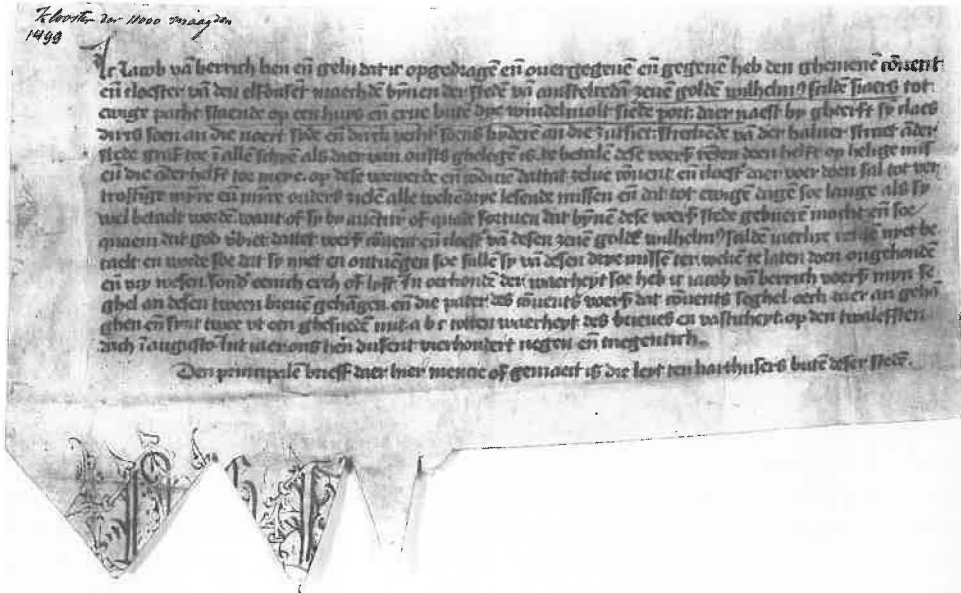 Klooster der 11000 maagden
1499
Ic Jacob vā berrich ken eñ gelij dat ic opgedragē eñ ouergegeuē eñ gegeuē heb den ghemenē cōuent
eñ cloester vā den elfdusēt maechdē bynnen der stede vā amstelredā zeuē goldē wilhelmꝰ scildē siaers tot
ewige pacht staende op een huys eñ erue butē dye windelmolt stede port daer naest by gheerst sy claes
dircs soen an die noert syde eñ an die zutsiet streckēde vā der haluer straet āder
stede graft toe ī allē schijē als daer win ousts ghelegē is te betalē dese voerſ rēten deen helft op helige mis
eñ die āder helft toe meye op dese voerwerde eñ cōdicie dattat zelue cōuent eñ cloest daer voer doen sal tot ver
troestīge mijre eñ mijre ouders zielē alle wekē drye lesende missen eñ dat tot ewigē dagē soe lange als sy
wel betaelt wordē want of sy by auētuer of quade fortuen dat bynnē dese voerſ stede gebuerē mocht eñ soe
quaem dat god v̄biet dattet voerſ cōuent eñ cloest vā desen zeuē goldē wilhelmꝰ scildē iaerlixe rēten nyet be
taelt en worde soe dat sy nyet en ontuēgen soe sullē sy vā desen drye missē ter wekē te laten doen ongehondē
eñ vry wesen sond̄ eenich erch of lyst In oerkonde der waerheyt soe heb ic iacob vā berrich voerſ myn se
ghel an desen tween brieuē gehāgen eñ die pater des cōuents voerſ dat cōuents seghel oeck daer an gehā
ghen eñ synt twee vt een ghesnedē mit a b c totten waerheyt des brieues en vasticheyt op den twalefsten
dach ī augusto Int iaer ons hēn dusent vierhondert negen eñ tnegentich
Den principalē brieff daer hier mencie of gemaect is die leyt ten karthusers butē deser stede.